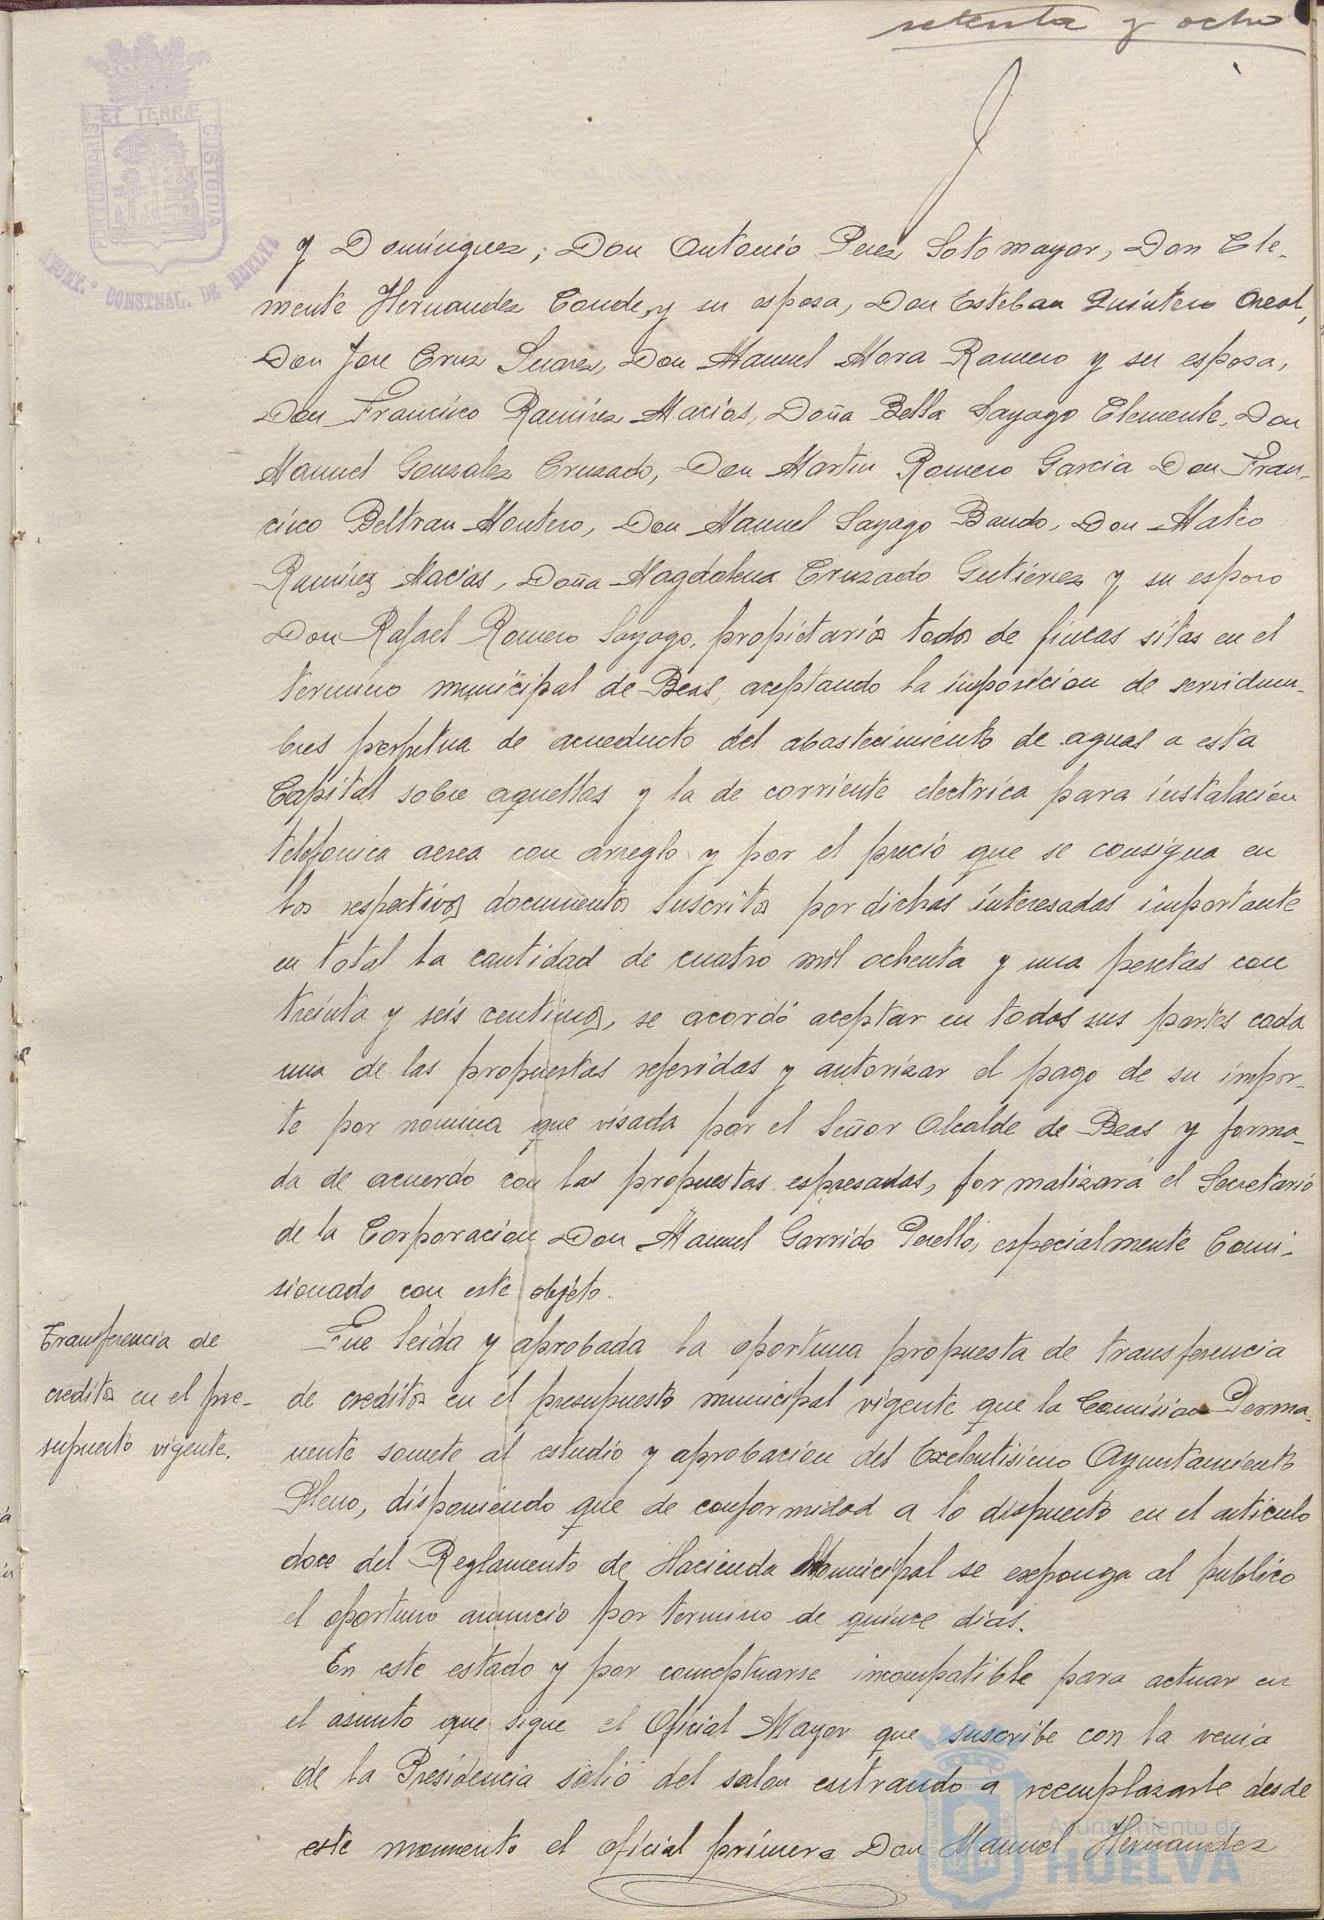 setenta y ocho
PORTUS MARIS ET TERRÆ CUSTODIA
AYUNT.º CONSTNAL. DE HUELVA
y Domínguez, Don Antonio Perez Sotomayor, Don Cle-
mente Hernandez Conde y su esposa, Don Esteban Quintero
Don Jose Cruz Suarez, Don Manuel Mora Romero y su esposa,
Don Francisco Ramírez Macias, Doña Bella Sayago Clemente, Don
Manuel Gonzalez Cruzado, Don Martin Romero Garcia Don Fran-
cisco Beltran Montero, Don Manuel Sayago Bando, Don Mateo
Ramírez Macias, Doña Magdalena Cruzado Gutierrez y su esposo
Don Rafael Romero Sayago, propietarios todos de fincas sitas en el
termino municipal de Beas, aceptando la imposicion de servidum-
bres perpetua de acueducto del abastecimiento de aguas a esta
Capital sobre aquellas y la de corriente electrica para instalación
telefonica aerea con arreglo y por el precio que se consigna en
los respectivos documentos suscritos por dichos interesados importante
en total la cantidad de cuatro mil ochenta y una pesetas con
treinta y seis centimos, se acordó aceptar en todas sus partes cada
una de las propuestas referidas y autorizar el pago de su impor-
te por nomina que visada por el Señor Alcalde de Beas y forma-
da de acuerdo con las propuestas espresadas, formalizará el Secretario
de la Corporacion Don Manuel Garrido Perello, especialmente Comi-
sionado con este objeto.
Transferencia de
creditos en el pre-
supuesto vigente.
Fue leida y aprobada la oportuna propuesta de transferencia
de creditos en el presupuesto municipal vigente que la Comision Perma-
nente somete al estudio y aprobacion del Excelentisimo Ayuntamiento
Pleno, disponiendo que de conformidad a lo dispuesto en el articulo
doce del Reglamento de Hacienda Municipal se exponga al publico
el oportuno anuncio por termino de quince dias.
En este estado y por conceptuarse incompatible para actuar en
el asunto que sigue el Oficial Mayor que suscribe con la venia
de la Presidencia salió del salon entrando a reemplazarle desde
este momento el oficial primero Don Manuel Hernandez
Ayuntamiento de
HUELVA